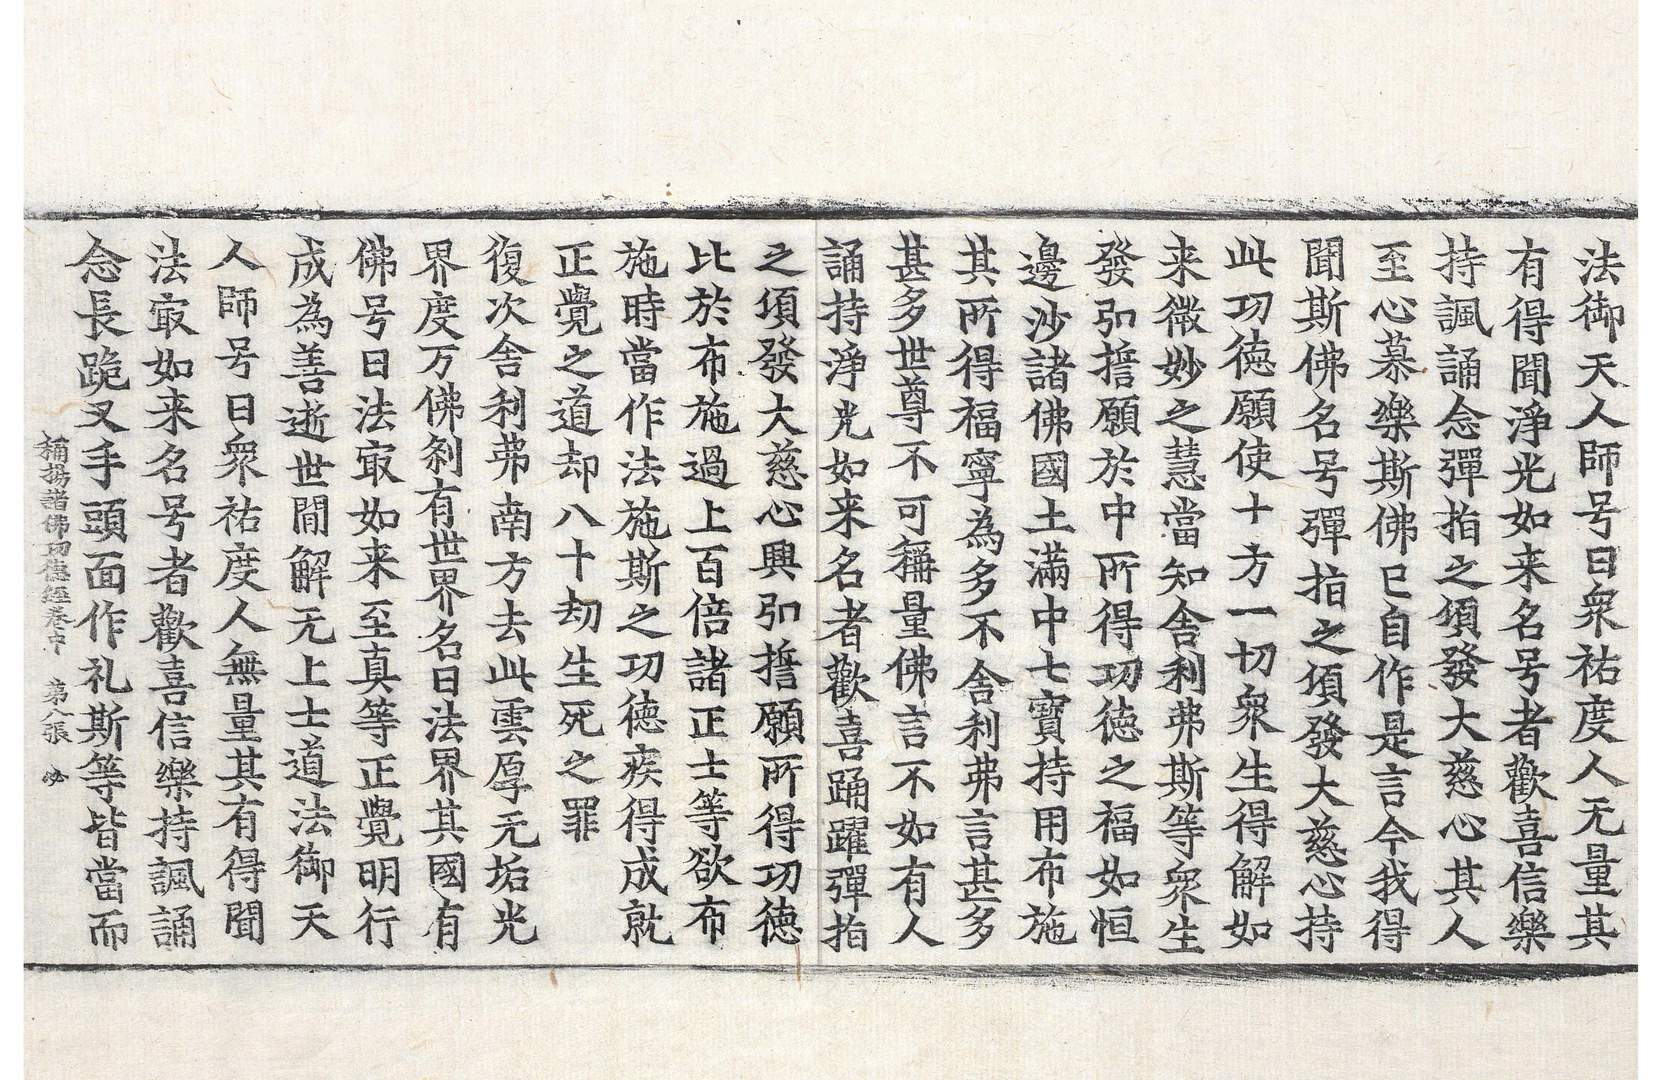 法御天人師号曰衆祐度人无量其
有得聞淨光如来名号者歡喜信樂
持諷誦念彈指之頃發大慈心其人
至心慕樂斯佛已自作是言今我得
聞斯佛名号彈指之頃發大慈心持
此功德願使十方一切衆生得解如
来微妙之慧當知舍利弗斯等衆生
發弘誓願於中所得功德之福如恒
邊沙諸佛國土滿中七寶持用布施
其所得福寧為多不舍利弗言甚多
甚多世尊不可稱量佛言不如有人
誦持淨光如来名者歡喜踊躍彈指
之頃發大慈心興弘誓願所得功德
比於布施過上百倍諸正士等欲布
施時當作法施斯之功德疾得成就
正覺之道却八十劫生死之罪
復次舍利弗南方去此雲厚无垢光
界度万佛刹有世界名曰法界其國有
佛号曰法冣如来至真等正覺明行
成為善逝世間解无上士道法御天
人師号曰衆祐度人無量其有得聞
法冣如来名号者歡喜信樂持諷誦
念長跪叉手頭面作礼斯等皆當而
稱揚諸佛功德經卷中 第八張 必